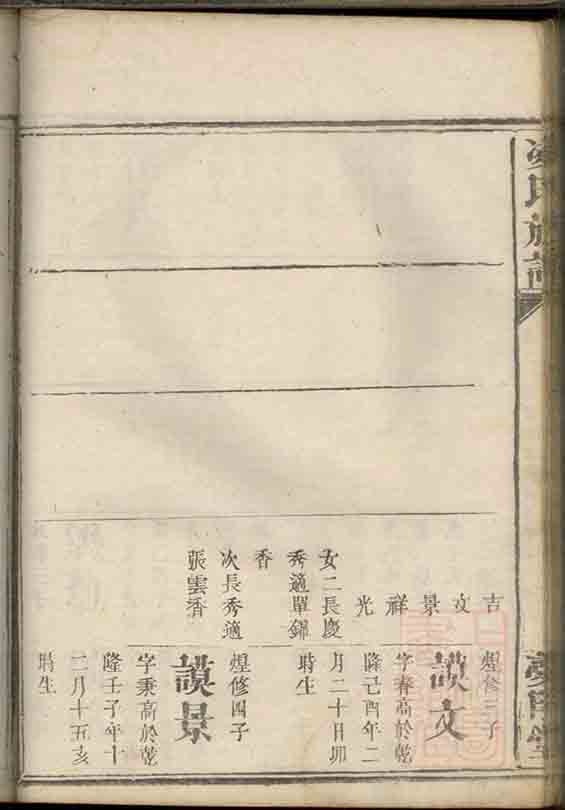 氏族譜
吉
文
景
祥
光
女二長慶
秀適單
香
次長秀適
張雲香
修三子
謨文
字春高於乾
隆己酉年二
月二十日卯
時生
修四子
謨景
字秉高於乾
隆壬子年十
二月十五亥
時生